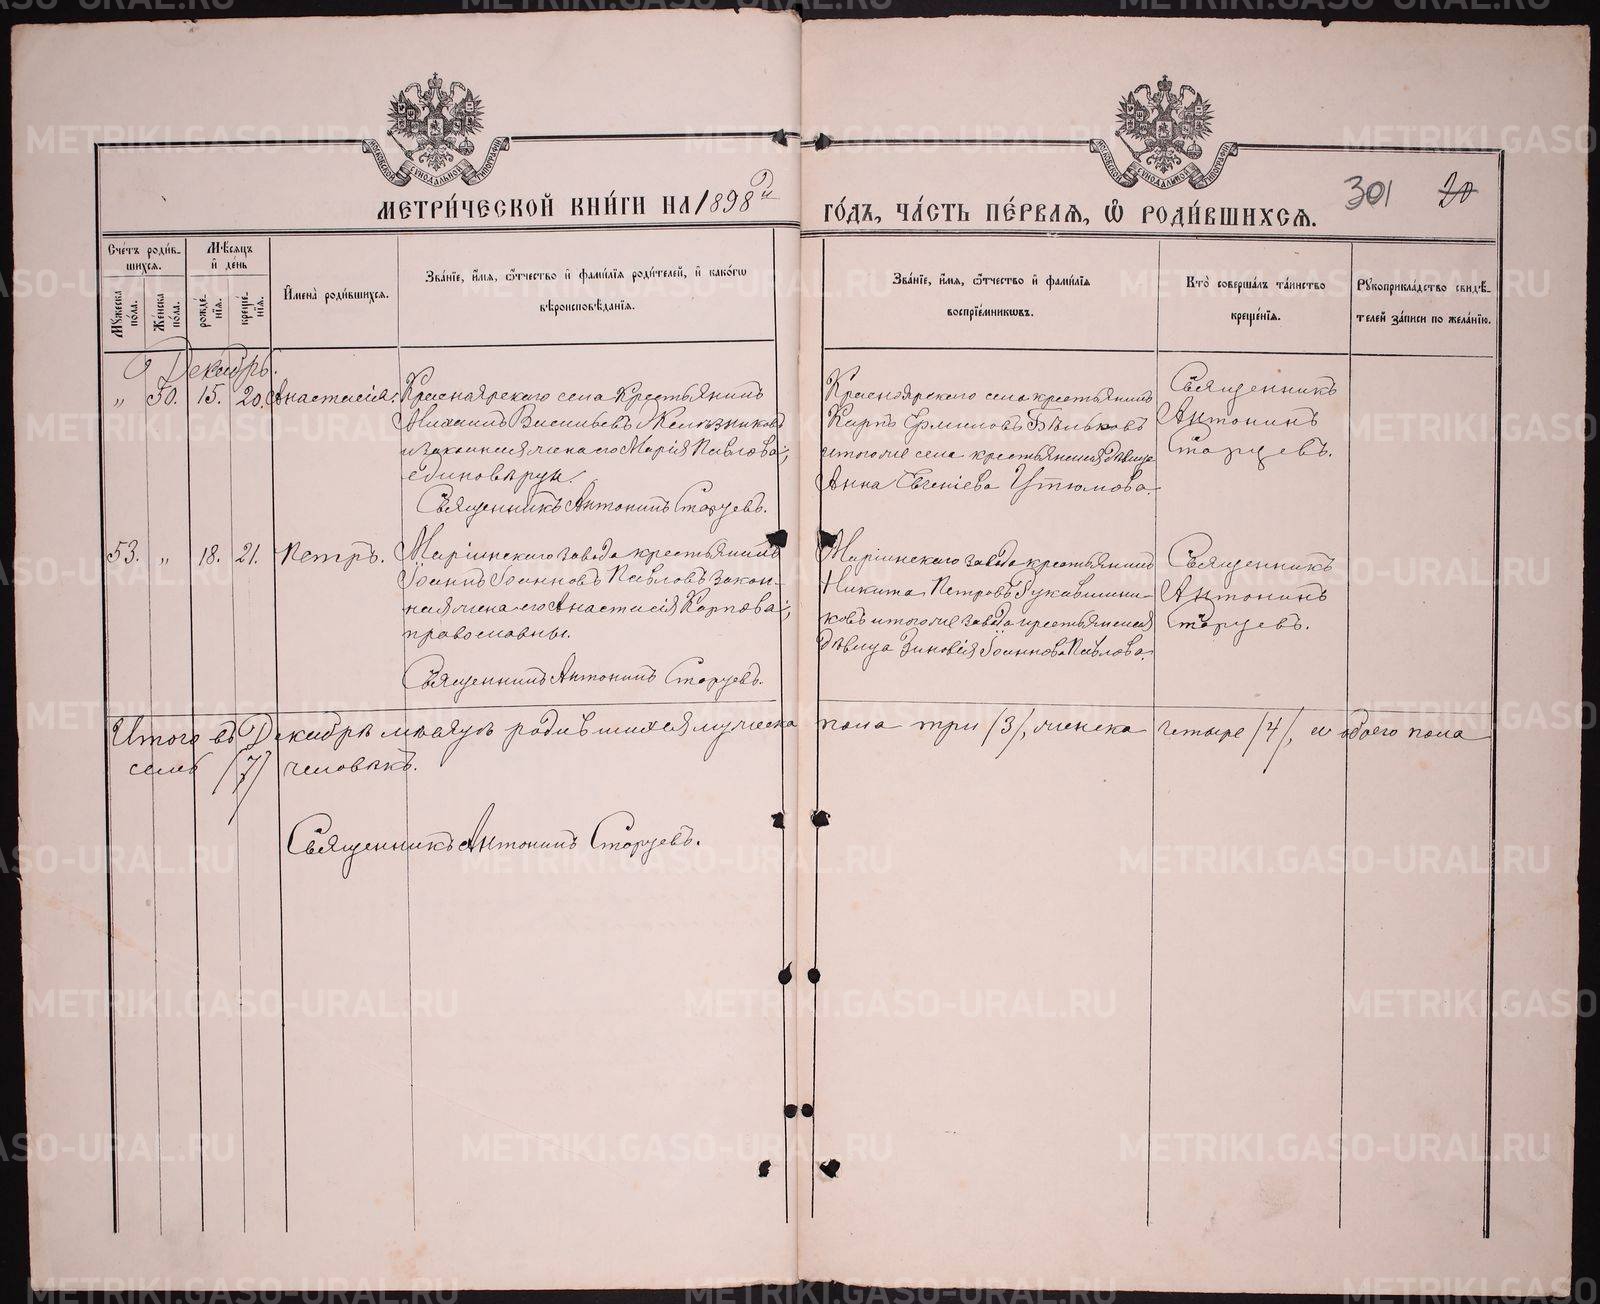 МЕТРИ́ЧЕСКОЙ КНИ́ГИ НА 1898й ГО́ДЪ, ЧА́СТЬ ПЕ́РВАѦ, Ѡ РОДИ́ВШИХСѦ.
301 20
Сче́тъ роди́в-
шихсѧ.
Мꙋ́жеска по́ла.
Же́нска по́ла.
Мѣ́сѧцъ
и҆ де́нь
рожде́-
нїѧ.
креще́-
нїѧ.
И҆мена̀ роди́вшихсѧ.
Зва́нїе, и҆́мѧ, ѻ҆́тчество и҆ фами́лїѧ роди́телей, и҆ како́гѡ
вѣроисповѣ́данїѧ.
Зва́нїе, и҆́мѧ, ѻ҆́тчество и҆ фами́лїѧ
воспрїе́мникѡвъ.
Кто̀ соверша́лъ та́инство
креще́нїѧ.
Рꙋкоприкла́дство свидѣ́-
телей за́писи по жела́нїю.
Декабрь.
„ 50. 15. 20. Анастасія.
Красноярскаго села крестьянинъ
Михаилъ Васильевъ Железниковъ
и законная жена его Марія Павлова;
единоверцы.
Священникъ Антонинъ Старцевъ.
Красноярскаго села крестьянинъ
Карпъ Ермиловъ Бѣльковъ
и того же села крестьянская дѣвица
Анна Евгеніева Устюмова.
Священникъ
Антонинъ
Старцевъ.
53. „ 18. 21. Петръ.
Маріинскаго завода крестьянинъ
Іоаннъ Іоанновъ Павловъ закон-
ная жена его Анастасія Карпова;
православны.
Священникъ Антонинъ Старцевъ.
Маріинскаго завода крестьянинъ
Никита Петровъ Рукавишни-
ковъ и того же завода крестьянская
дѣвица Зиновія Іоаннова Павлова.
Священникъ
Антонинъ
Старцевъ.
Итого въ Декабрѣ мѣсяцѣ родившихся мужеска пола три /3/, женска четыре /4/, а обоего пола
семь /7/ человѣкъ.
Священникъ Антонинъ Старцевъ.
METRIKI.GASO-URAL.RU